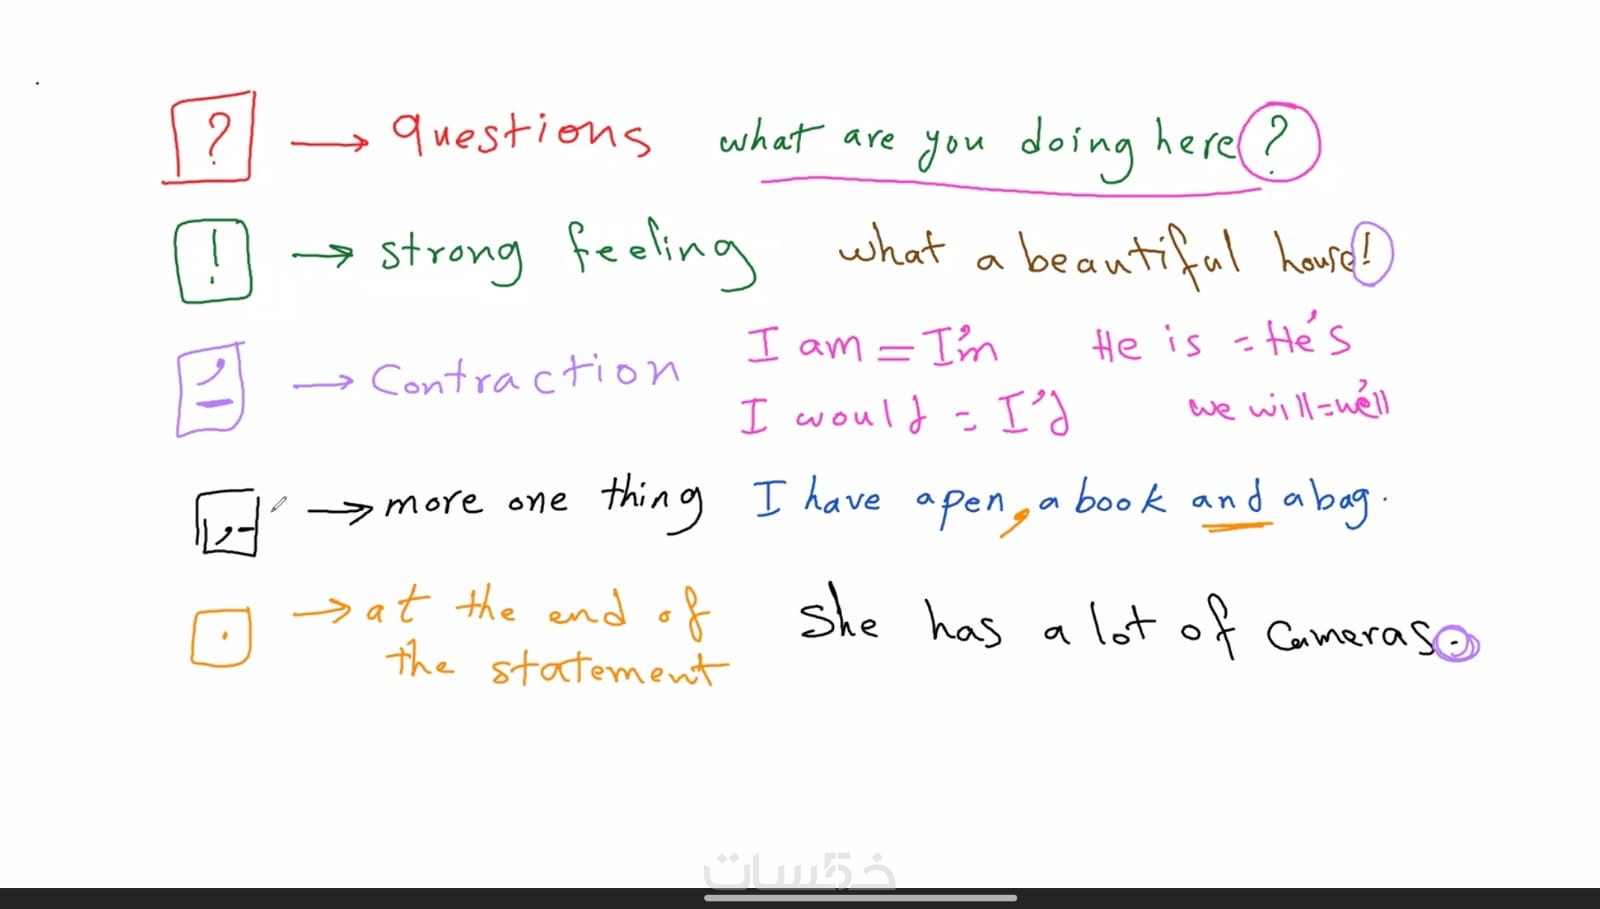 ? → questions what are you doing here?
! → strong feeling what a beautiful house!
' → Contraction I am = I'm He is = He's
I would = I'd we will = we'll
, → more one thing I have a pen, a book and a bag.
. → at the end of She has a lot of cameras.
the statement
خمسات